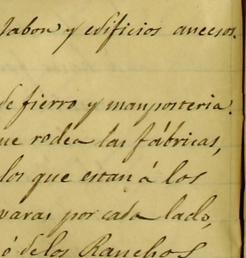 Jabon y edificios anecsos.
de fierro y manposteria.
que rodea las fábricas,
los que estan á los
varas por cada lado,
ó de los Ranchos